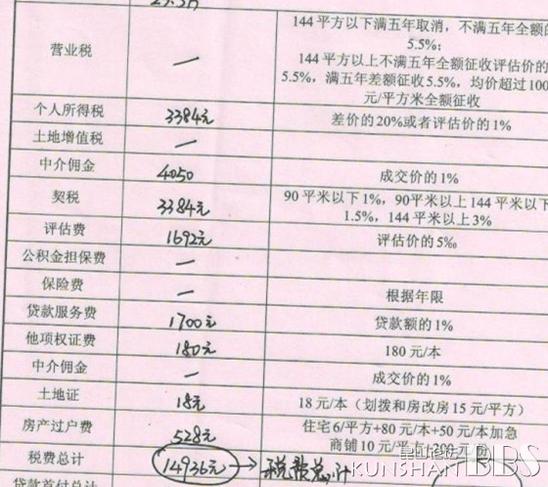 营业税
一
144 平方以下满五年取消，不满五年全额的
5.5%；
144 平方以上不满五年全额征收评估价的
5.5%，满五年差额征收5.5%，均价超过100
元/平方米全额征收
个人所得税 3384元 差价的20%或者评估价的1%
土地增值税 一
中介佣金 4050 成交价的1%
契税 3384元
90 平米以下1%，90平米以上144 平米以下
1.5%，144 平米以上3%
评估费 1692元 评估价的5‰
公积金担保费 一
保险费 一 根据年限
贷款服务费 1700元 贷款额的1%
他项权证费 180元 180 元/本
中介佣金 一 成交价的1%
土地证 18元 18 元/本（划拨和房改房 15 元/平方）
房产过户费 528元
住宅 6/平方+80 元/本+50 元/本加急
商铺 10 元/平方
税费总计 14936元→税费总计
贷款首付总计
KUNSHAN BBS